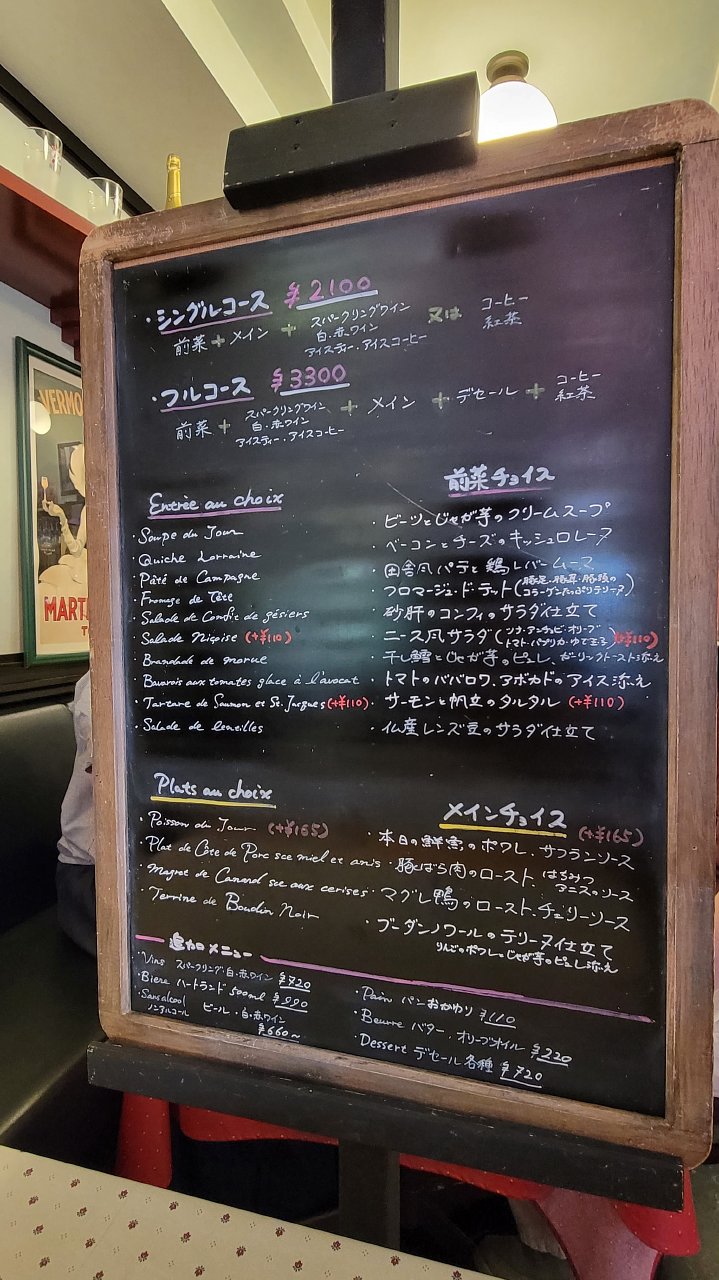 ・シングルコース ¥2100
前菜 + メイン + スパークリングワイン 白・赤ワイン アイスティー・アイスコーヒー 又は コーヒー 紅茶
・フルコース ¥3300
前菜 + スパークリングワイン 白・赤ワイン アイスティー・アイスコーヒー + メイン + デセール + コーヒー 紅茶
Entrée au choix
・Soupe du Jour
・Quiche Lorraine
・Pâté de Campagne
・Fromage de Tête
・Salade de Confit de gésiers
・Salade Niçoise (+¥110)
・Brandade de morue
・Bavarois aux tomates glace à l'avocat
・Tartare de Saumon et St. Jacques (+¥110)
・Salade de lentilles
前菜チョイス
・ビーツとじゃが芋のクリームスープ
・ベーコンとチーズのキッシュロレーヌ
・田舎風パテと鶏レバームース
・フロマージュ・ド・テット(豚足・豚耳・豚頭のコラーゲンたっぷりテリーヌ)
・砂肝のコンフィのサラダ仕立て
・ニース風サラダ(ツナ・アンチョビ・オリーブ トマト・パプリカ・ゆで玉子)(+¥110)
・干し鱈とじゃが芋のピュレ、ガーリックトースト添え
・トマトのババロワ、アボカドのアイス添え
・サーモンと帆立のタルタル (+¥110)
・仏産レンズ豆のサラダ仕立て
Plats au choix
・Poisson du Jour (+¥165)
・Plat de Côte de Porc sce miel et anis
・Magret de Canard sce aux cerises
・Terrine de Boudin Noir
メインチョイス (+¥165)
・本日の鮮魚のポワレ、サフランソース
・豚ばら肉のロースト、はちみつ アニスのソース
・マグレ鴨のロースト、チェリーソース
・ブーダンノワールのテリーヌ仕立て
りんごのポワレとじゃが芋のピュレ添え
追加メニュー
・Vins スパークリング・白・赤ワイン ¥720
・Biere ハートランド 500ml ¥990
・Sans alcool ノンアルコール ビール・白・赤ワイン
¥660〜
・Pain パンおかわり ¥110
・Beurre バター・オリーブオイル ¥220
・Dessert デセール各種 ¥720
VERMO
MART